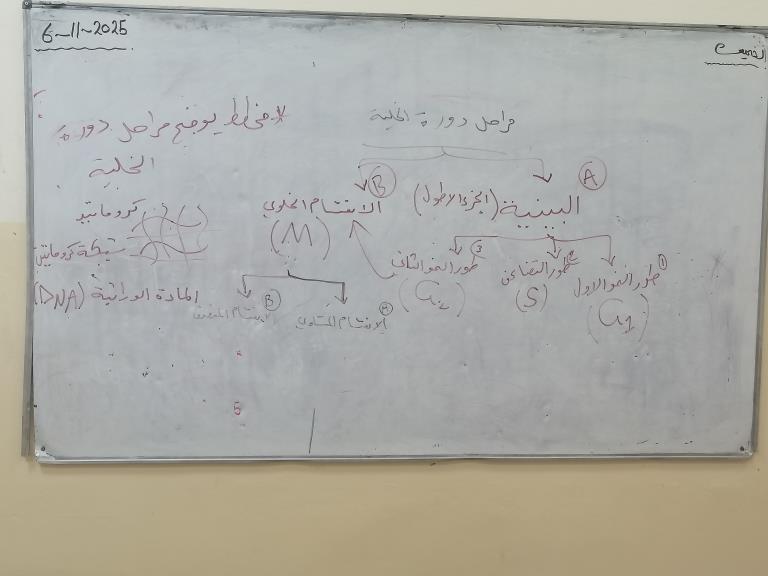 الخميس
6-11-2025
مراحل دورة الخلية
* مخطط يوضح مراحل دورة
الخلية
A
البينية (الجزء الاطول)
B
الانقسام الخلوي
(M)
1 طور النمو الاول
(G1)
2 طور التضاعف
(S)
3 طور النمو الثاني
(G2)
A الانقسام المتساوي
B
كروماتيد
شبكة كروماتين
المادة الوراثية (DNA)
5